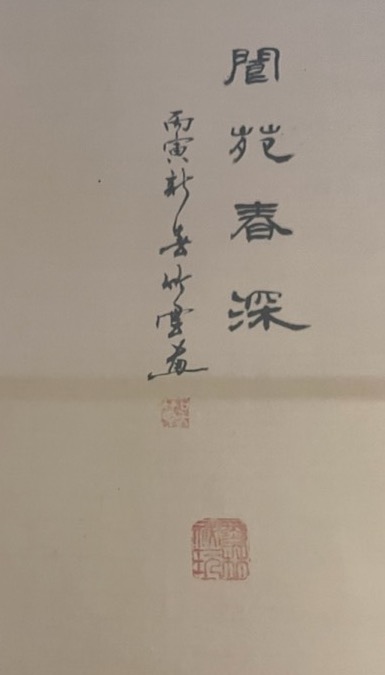 閬苑春深
丙寅新春竹雲畫